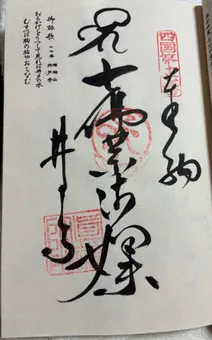 奉納
七佛薬師如来
井戸寺
御詠歌
十七番 瑠璃山 井戸寺
おもかげをうつして見れば井戸の水
むすべば胸の垢やおちなむ